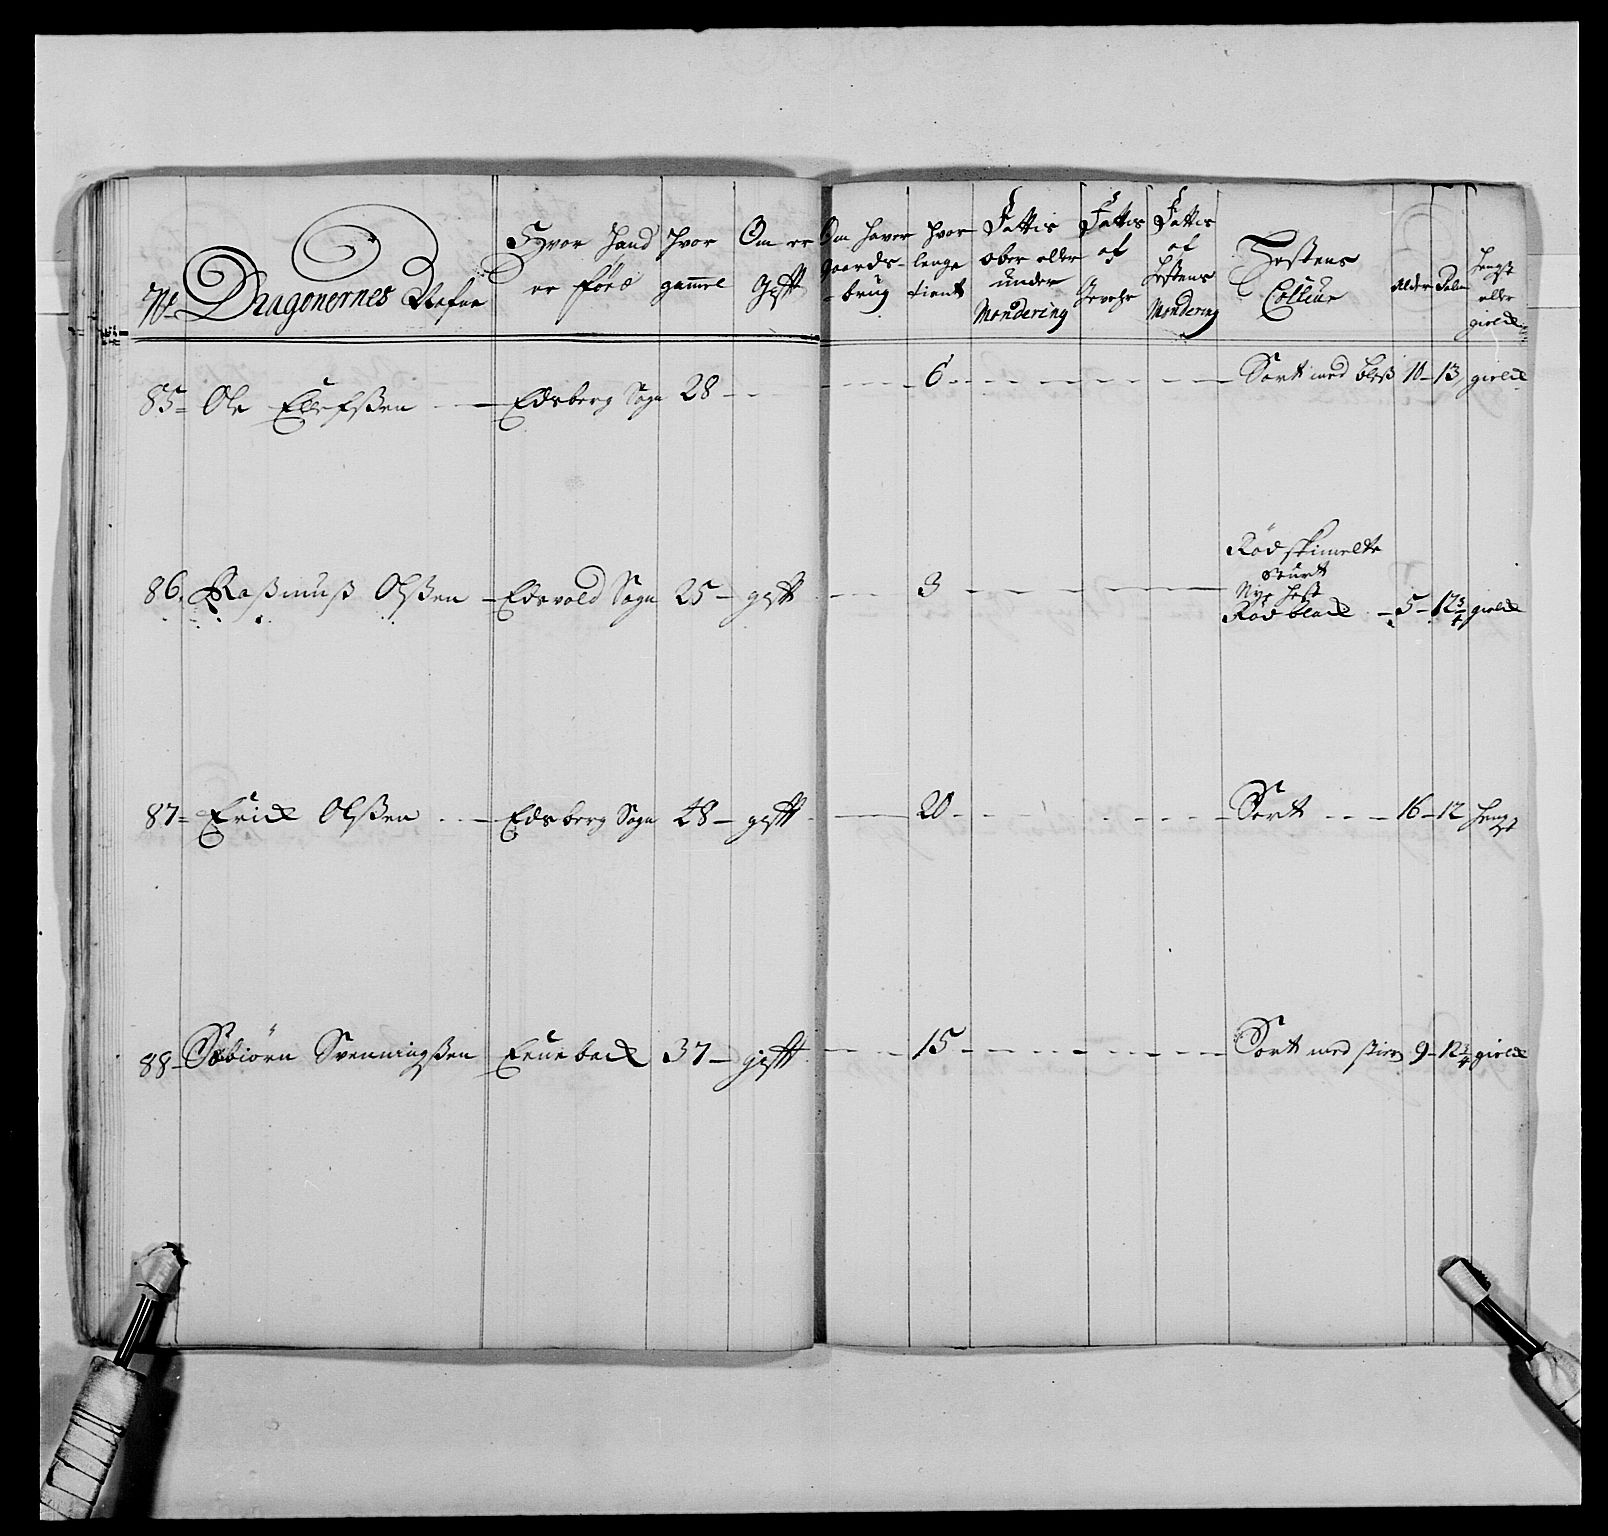 No Dragonernes Nafne
Hvor Hand er föed
Hvor gammel
Om er Gifft
Om haver gaards-brug
hvor lenge tient
Fattis ober eller under Mondering
Fattis af Gevehr
Fattis af Hestens Mondering
Hestens Colleur
Alder
Hengst eller gield
85 Ole Ellefßen Edsberg Sogn 28 6 Sort med bleß 10 13 gield
86 Raßmuß Olßen Edsvold Sogn 25 gifft 3 Rödskimelte
Nye Hest
Röd black 5 12 3/4 gield
87 Erick Olßen Edsberg Sogn 48 gifft 20 Sort 16 12 hengst
88 Sæbiörn Svenningßen Eneback 37 gifft 15 Sort med stiern 9 12 3/4 gield